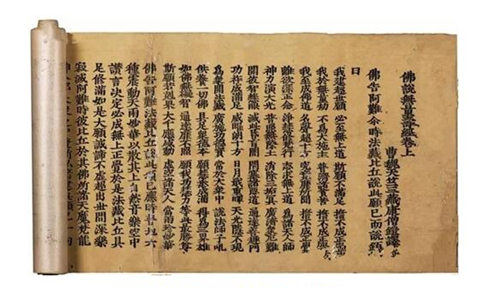 佛說無量壽經卷上
曹魏天竺三藏康僧鎧譯
佛告阿難尒時法藏比丘說此願已而說頌
曰
我建超世願 必至無上道 斯願不滿足 誓不成等覺
我於無量劫 不為大施主 普濟諸貧苦 誓不成等覺
我至成佛道 名聲超十方 究竟靡所聞 誓不成等覺
離欲深正念 淨慧修梵行 志求無上道 為諸天人師
神力演大光 普照無際土 消除三垢冥 廣濟眾厄難
開彼智慧眼 滅此昏盲闇 閉塞諸惡道 通達善趣門
功祚成滿足 威曜朗十方 日月戢重暉 天光隱不現
為眾開法藏 廣施功德寶 常於大眾中 說法師子吼
供養一切佛 具足眾德本 願慧悉成滿 得為三界雄
如佛無礙智 通達靡不照 願我功慧力 等此最勝尊
斯願若剋果 大千應感動 虛空諸天人 當雨珍妙華
佛告阿難法藏比丘說此頌已應時普地六
種震動天雨妙華以散其上自然音樂空中
讚言決定必成無上正覺於是法藏比丘具
足修滿如是大願誠諦不虛超出世間深樂
寂滅阿難時彼比丘於其佛所諸天魔梵龍